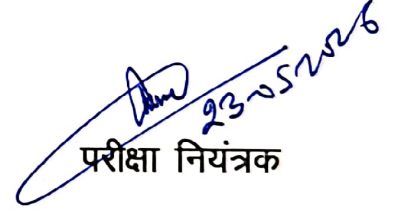 23-05-2026
परीक्षा नियंत्रक